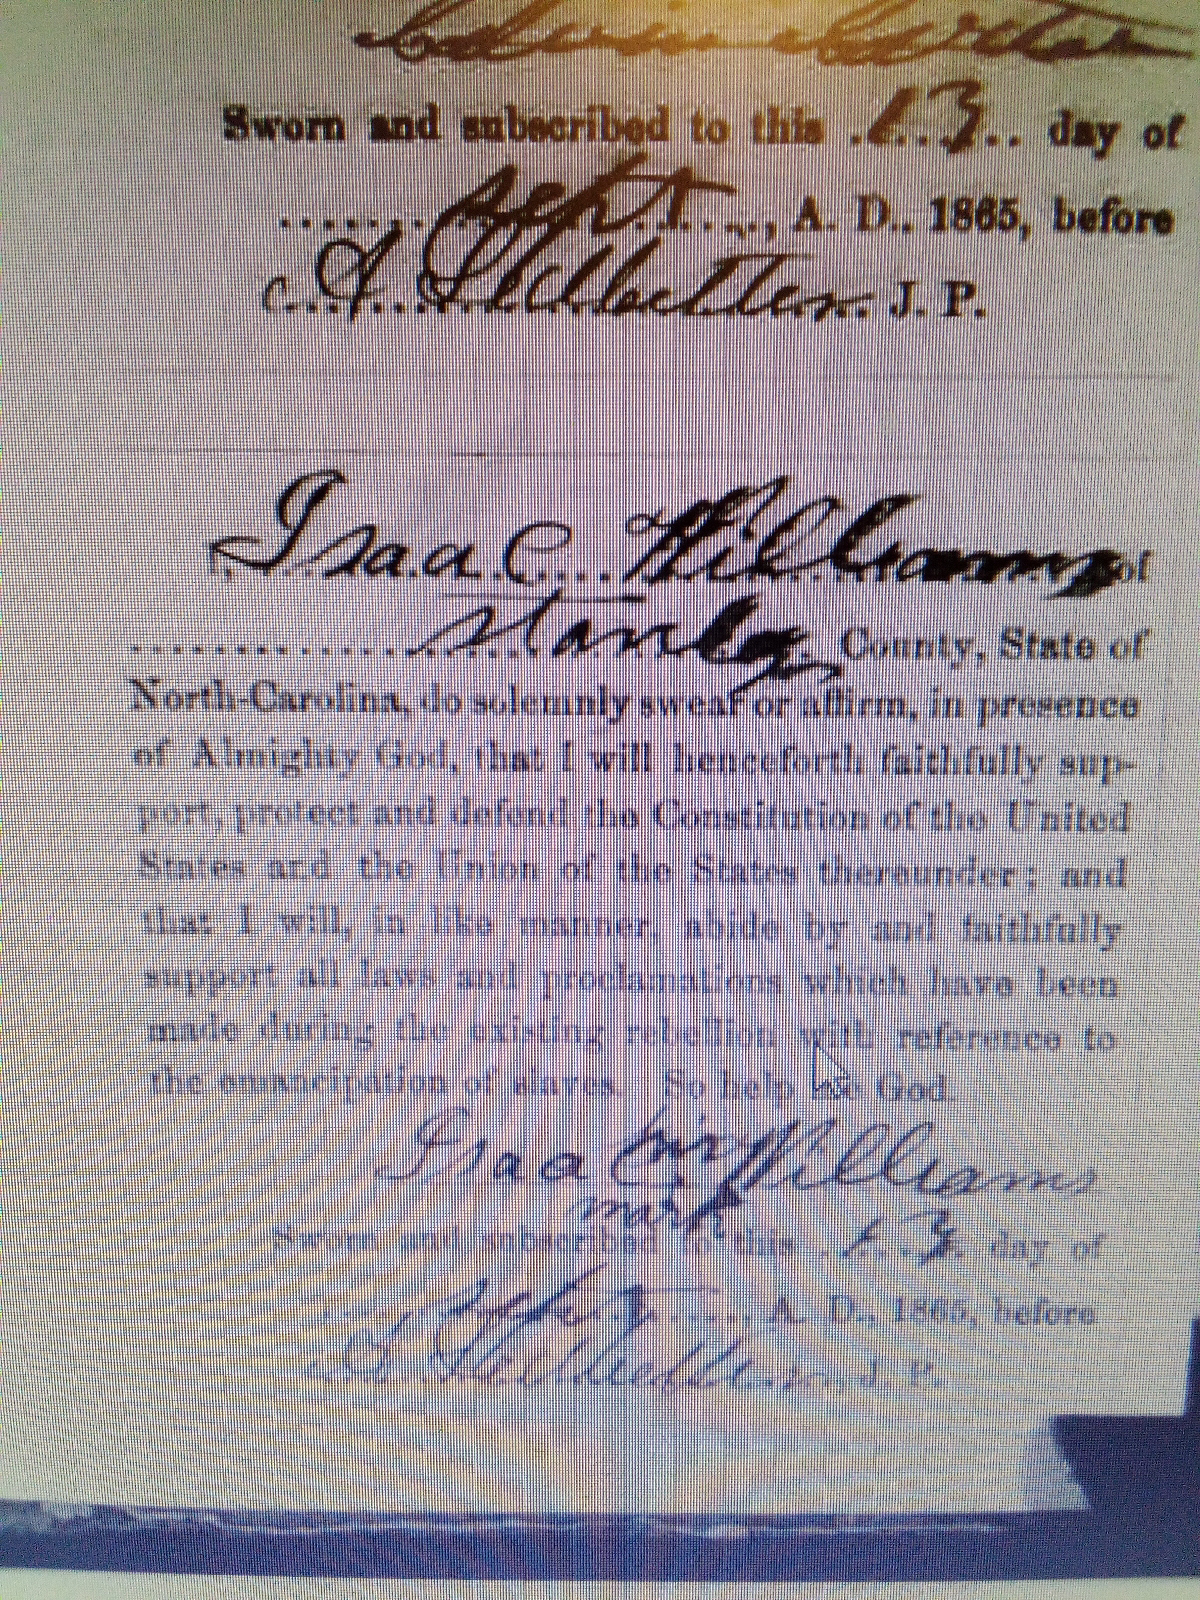 Sworn and subscribed to this .13.. day of
Sept., A. D., 1865, before
J. P.
Isaac Williams of
Stanly County, State of
North-Carolina, do solemnly swear or affirm, in presence
of Almighty God, that I will henceforth faithfully sup-
port, protect and defend the Constitution of the United
States and the Union of the States thereunder; and
that I will, in like manner, abide by and faithfully
support all laws and proclamations which have been
made during the existing rebellion with reference to
the emancipation of slaves. So help me God.
Isaac his Williams
mark
Sworn and subscribed to this .13. day of
Sept., A. D., 1865, before
J. P.